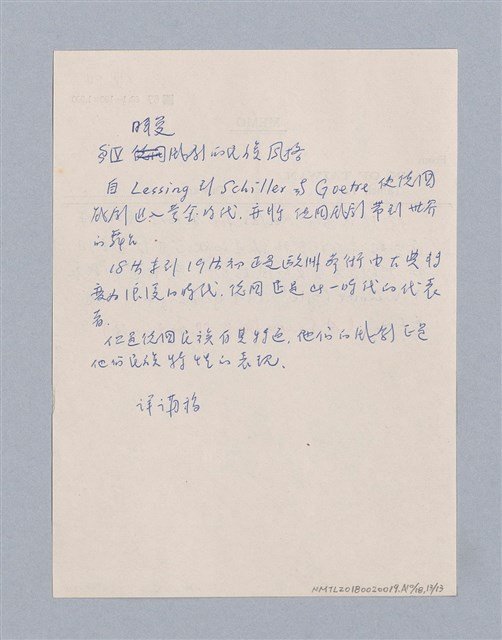 摘要
§IV 德國戲劇的民族風格
自 Lessing 到 Schiller 與 Goetre 使德國
戲劇進入黃金時代，並將德國戲劇帶到世界
的舞台．
18世末到19世初正是歐洲藝術由古典轉
變為浪漫的時代．德國正是此一時代的代表
者．
但是德國民族有其特色，他們的戲劇正是
他們民族特性的表現．
詳講稿
NMTL20180020019.A10/18,13/13